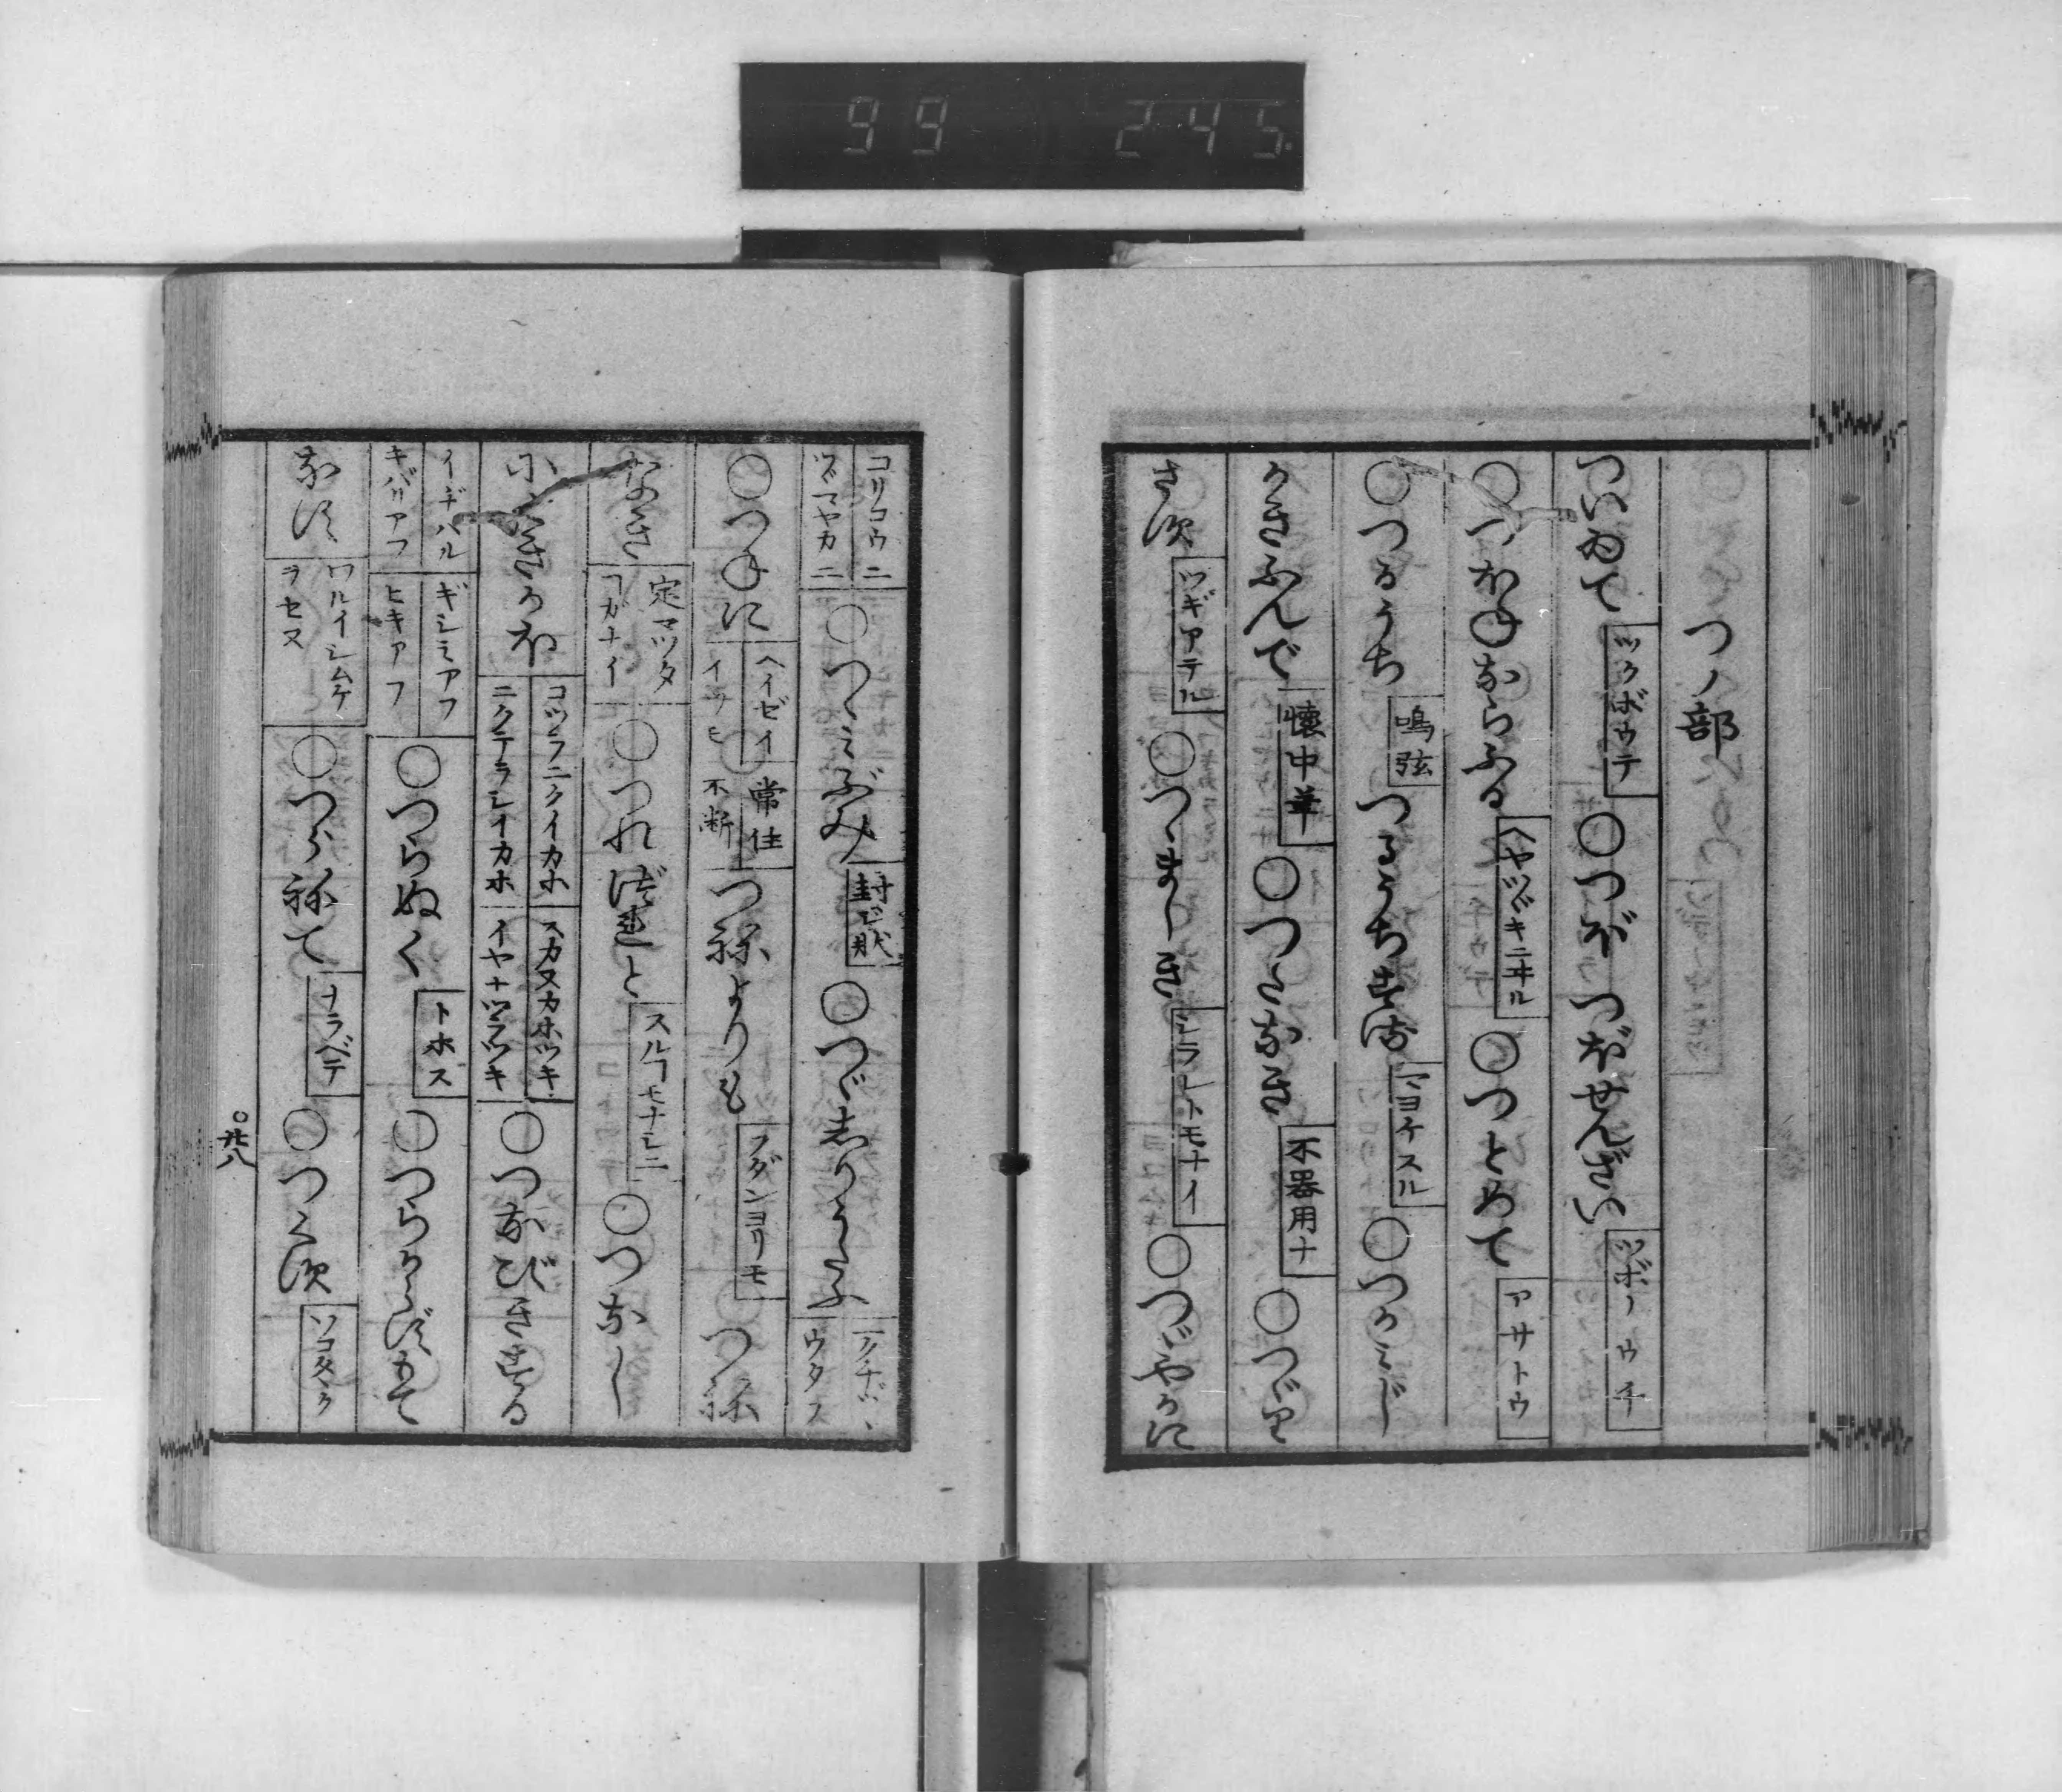 99 245
つノ部
ついゐて ツクボウテ ○つぼ つぼせんざい ツボノウチ
○つぼねならふる ヘヤツヾキニヰル ○つとめて アサトウ
○つるうち 鳴弦 つるうちする マヨケスル ○つかミじ
かきふんで 懐中筆 ○つたなき 不器用ナ ○つゞり
さす ツギアテル ○つゝまし ○つゞやかに
コリコウニ ツヾマヤカニ ○つゝミぶみ 封ジ状 ○つゞしりうたふ ウタフ
○つねに ヘイゼイ イツモ 常住 不断 つねよりも フダンヨリモ つね
なき 定マツタ ヿガナイ ○つれ〴〵と スルヿモナシニ ○つなし
にくきかほ コツラニクイカホ ニクテラシイカホ スカヌカホツキ イヤナツラツキ ○つなびきする
イヂバル キバリアフ ギシミアフ ヒキアフ ○つらぬく トホス ○つらからずもて
なす ワルイシムケヲセヌ ○つらねて ナラベテ ○つくす
○廿八